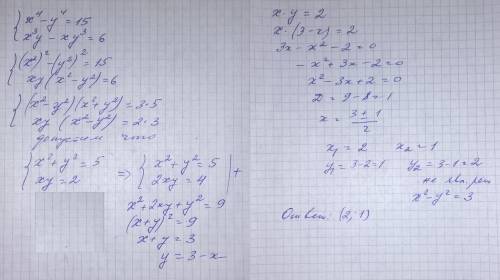 { x⁴ - y⁴ = 15
x³y - xy³ = 6
{ (x²)² - (y²)² = 15
xy (x² - y²) = 6
{ (x² - y²)(x² + y²) = 3·5
xy (x² - y²) = 2·3
допустим что
{ x² + y² = 5
xy = 2
=> { x² + y² = 5
2xy = 4 | +
x² + 2xy + y² = 9
(x + y)² = 9
x + y = 3
y = 3 - x
x · y = 2
x · (3 - x) = 2
3x - x² - 2 = 0
- x² + 3x - 2 = 0
x² - 3x + 2 = 0
D = 9 - 8 = 1
x = 3 ± 1 / 2
x₁ = 2 x₂ = 1
y₁ = 3 - 2 = 1 y₂ = 3 - 1 = 2
не явл. реш
x² - y² = 3
Ответ: (2; 1)